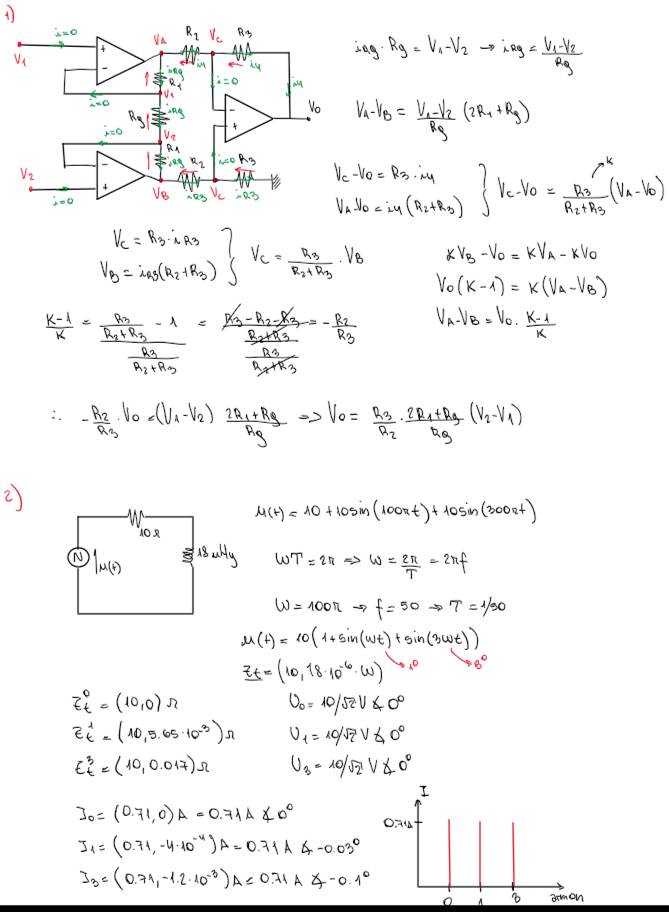 1)
i=0
V1
+
-
i=0
VA
R2
i4
VC
R3
i4
i4
iRg
R1
V1
Rg
iRg
i=0
V2
R1
iRg
i=0
-
+
V0
i=0
-
+
V2
i=0
VB
R2
iR3
VC
i=0
R3
iR3
iRg · Rg = V1-V2 → iRg = V1-V2 / Rg
VA-VB = V1-V2 / Rg (2R1+Rg)
VC-V0 = R3 · i4
VA-V0 = i4 (R2+R3) } VC-V0 = R3 / R2+R3 (VA-V0)
K
VC = R3 · iR3
VB = iR3(R2+R3) } VC = R3 / R2+R3 · VB
KVB - V0 = KVA - KV0
V0(K-1) = K(VA-VB)
VA-VB = V0 · K-1 / K
K-1 / K = R3 / R2+R3 - 1 / R3 / R2+R3 = R3-R2-R3 / R2+R3 / R3 / R2+R3 = - R2 / R3
∴ - R2 / R3 · V0 = (V1-V2) 2R1+Rg / Rg ⇒ V0 = R3 / R2 · 2R1+Rg / Rg (V2-V1)
2)
10Ω
N
μ(t)
18μHy
μ(t) = 10+10sin(100πt)+10sin(300πt)
WT = 2π ⇒ W = 2π / T = 2πf
W = 100π → f = 50 → T = 1/50
μ(t) = 10(1+sin(wt)+sin(3wt))
1º
3º
Zt = (10, 18·10⁻⁶·W)
Zt⁰ = (10,0)Ω
U0 = 10/√2 V ∡ 0º
Zt¹ = (10, 5.65·10⁻³)Ω
U1 = 10/√2 V ∡ 0º
Zt³ = (10, 0.017)Ω
U3 = 10/√2 V ∡ 0º
I0 = (0.71, 0)A = 0.71A ∡ 0º
I1 = (0.71, -4·10⁻⁴)A = 0.71A ∡ -0.03º
I3 = (0.71, -1.2·10⁻³)A = 0.71A ∡ -0.1º
I
0.71A
0 1 3 armon